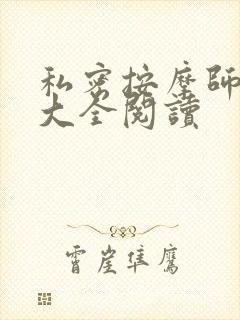 私密按摩師
大全閱讀
霄崖隼鷹